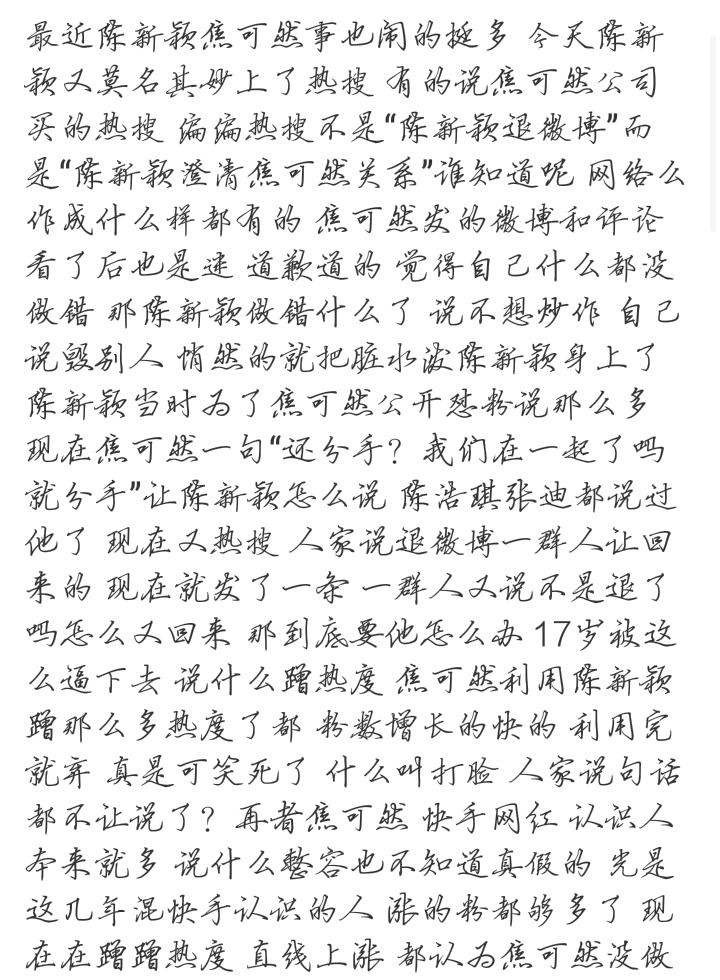 最近陈新颖焦可然事也闹的挺多 今天陈新
颖又莫名其妙上了热搜 有的说焦可然公司
买的热搜 偏偏热搜不是“陈新颖退微博”而
是“陈新颖澄清焦可然关系”谁知道呢 网络么
作成什么样都有的 焦可然发的微博和评论
看了后也是迷 道歉道的 觉得自己什么都没
做错 那陈新颖做错什么了 说不想炒作 自己
说毁别人 悄然的就把脏水泼陈新颖身上了
陈新颖当时为了焦可然公开怼粉说那么多
现在焦可然一句“还分手？我们在一起了吗
就分手”让陈新颖怎么说 陈浩琪张迪都说过
他了 现在又热搜 人家说退微博一群人让回
来的 现在就发了一条 一群人又说不是退了
吗怎么又回来 那到底要他怎么办 17岁被这
么逼下去 说什么蹭热度 焦可然利用陈新颖
蹭那么多热度了都 粉数增长的快的 利用完
就弃 真是可笑死了 什么叫打脸 人家说句话
都不让说了？再者焦可然 快手网红 认识人
本来就多 说什么整容也不知道真假的 光是
这几年混快手认识的人 涨的粉都够多了 现
在在蹭蹭热度 直线上涨 都认为焦可然没做